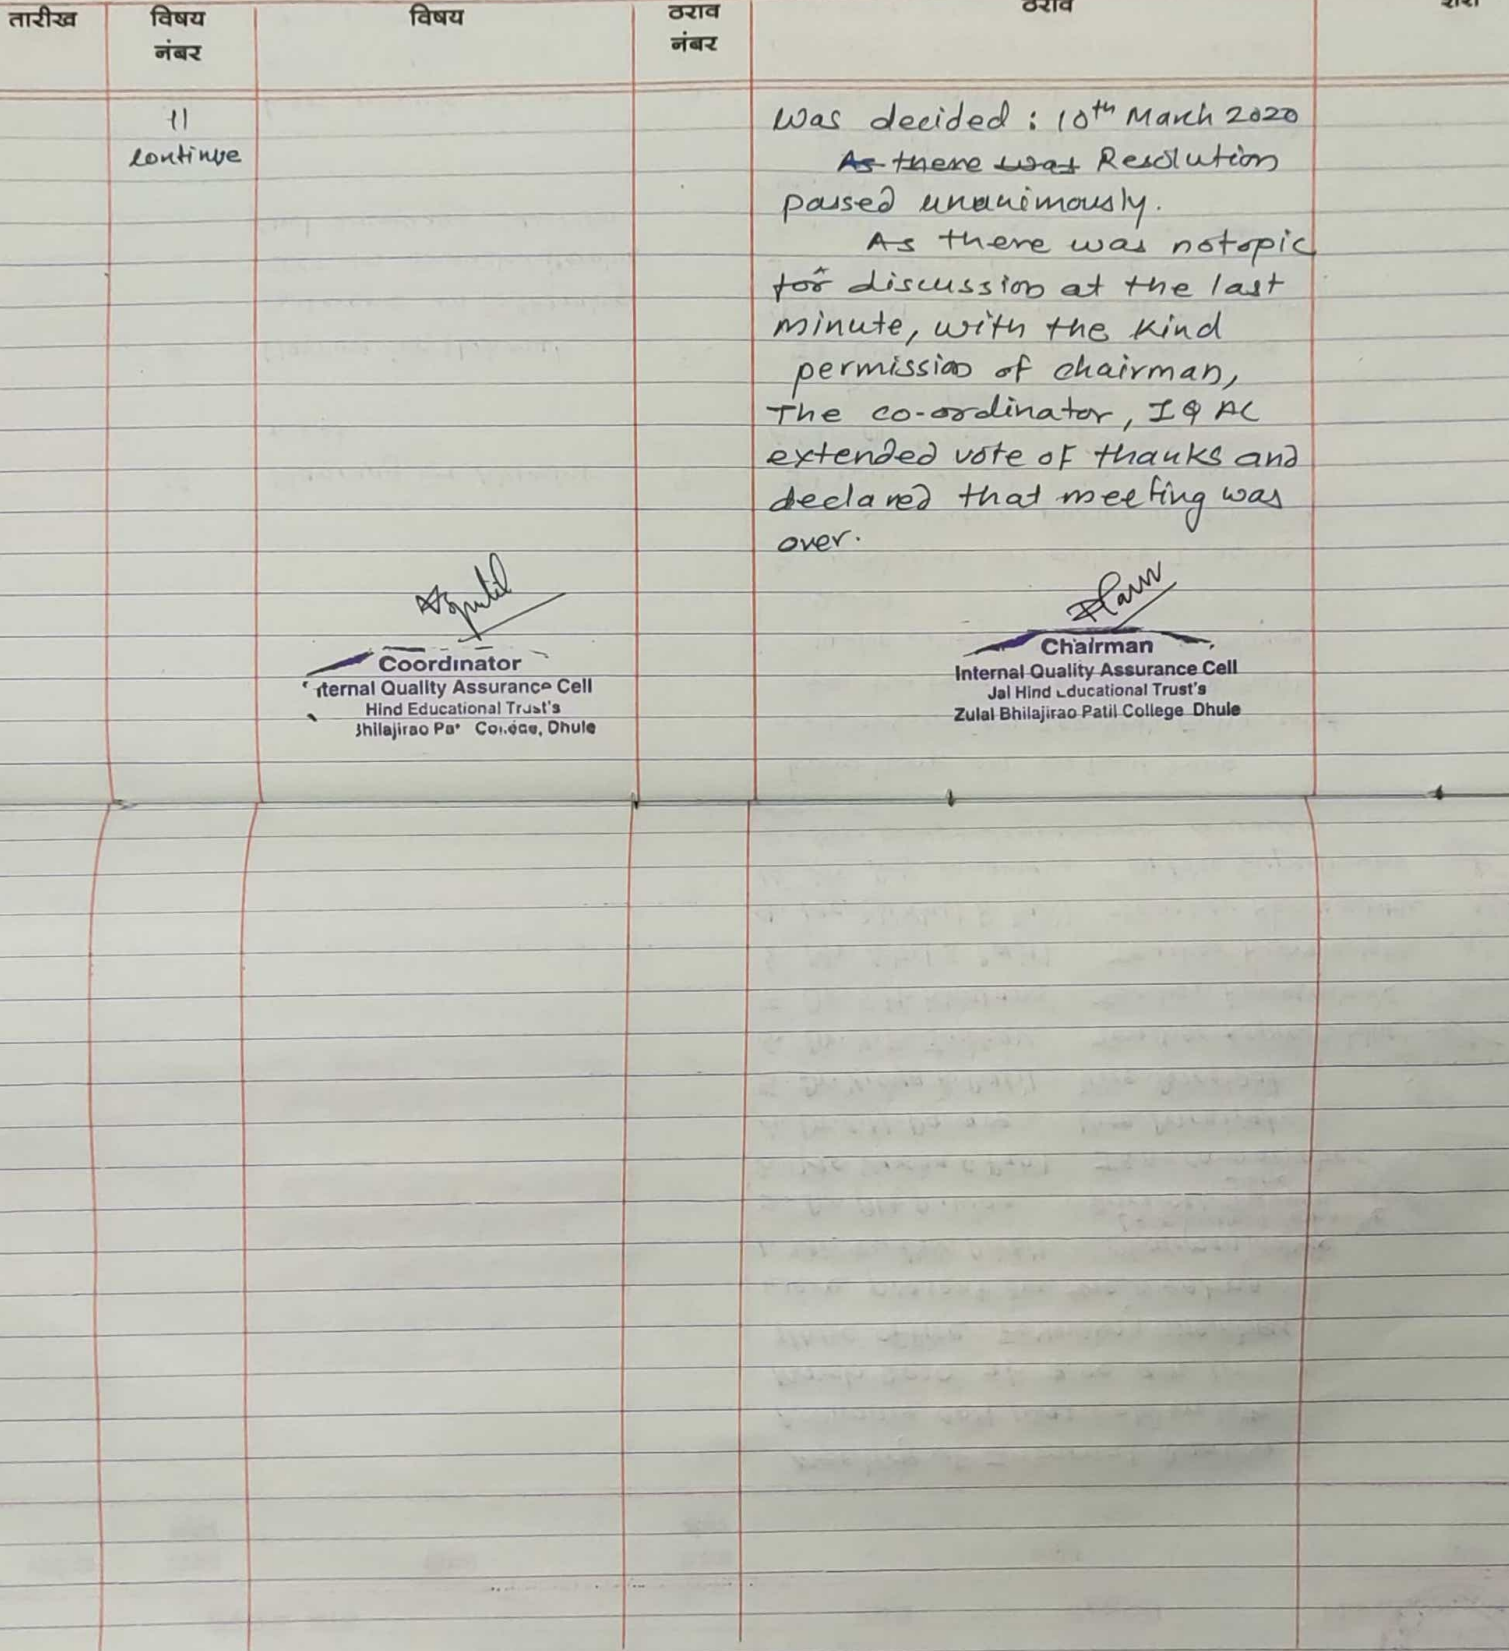 तारीख
विषय
नंबर
विषय
ठराव
नंबर
ठराव
11
continue
was decided : 10th March 2020
As there was Resolution
passed unanimously.
As there was notopic
for discussion at the last
minute, with the kind
permission of chairman,
The co-ordinator, IQAC
extended vote of thanks and
declared that meeting was
over.
Coordinator
ternal Quality Assurance Cell
Hind Educational Trust's
Bhilajirao Pa College, Dhule
Chairman
Internal Quality Assurance Cell
Jai Hind Educational Trust's
Zulal Bhilajirao Patil College Dhule